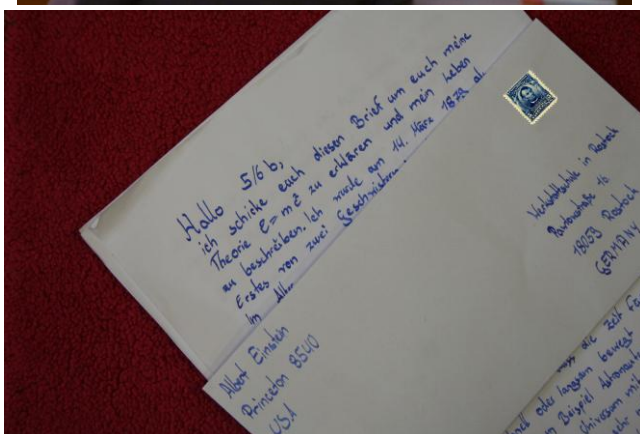 Hallo 5/6 b,
ich schicke euch diesen Brief um euch meine
Theorie E=mc² zu erklären und mein Leben
zu beschreiben. Ich wurde am 14. März 1879 al
Erstes von zwei Geschwistern
Im
Albert Einstein
Princeton 8540
USA
Werkstattschule in Rostock
18059 Rostock
GERMANY
die Zeit
oder langsam bewegt
Beispiel Astronaut
mit